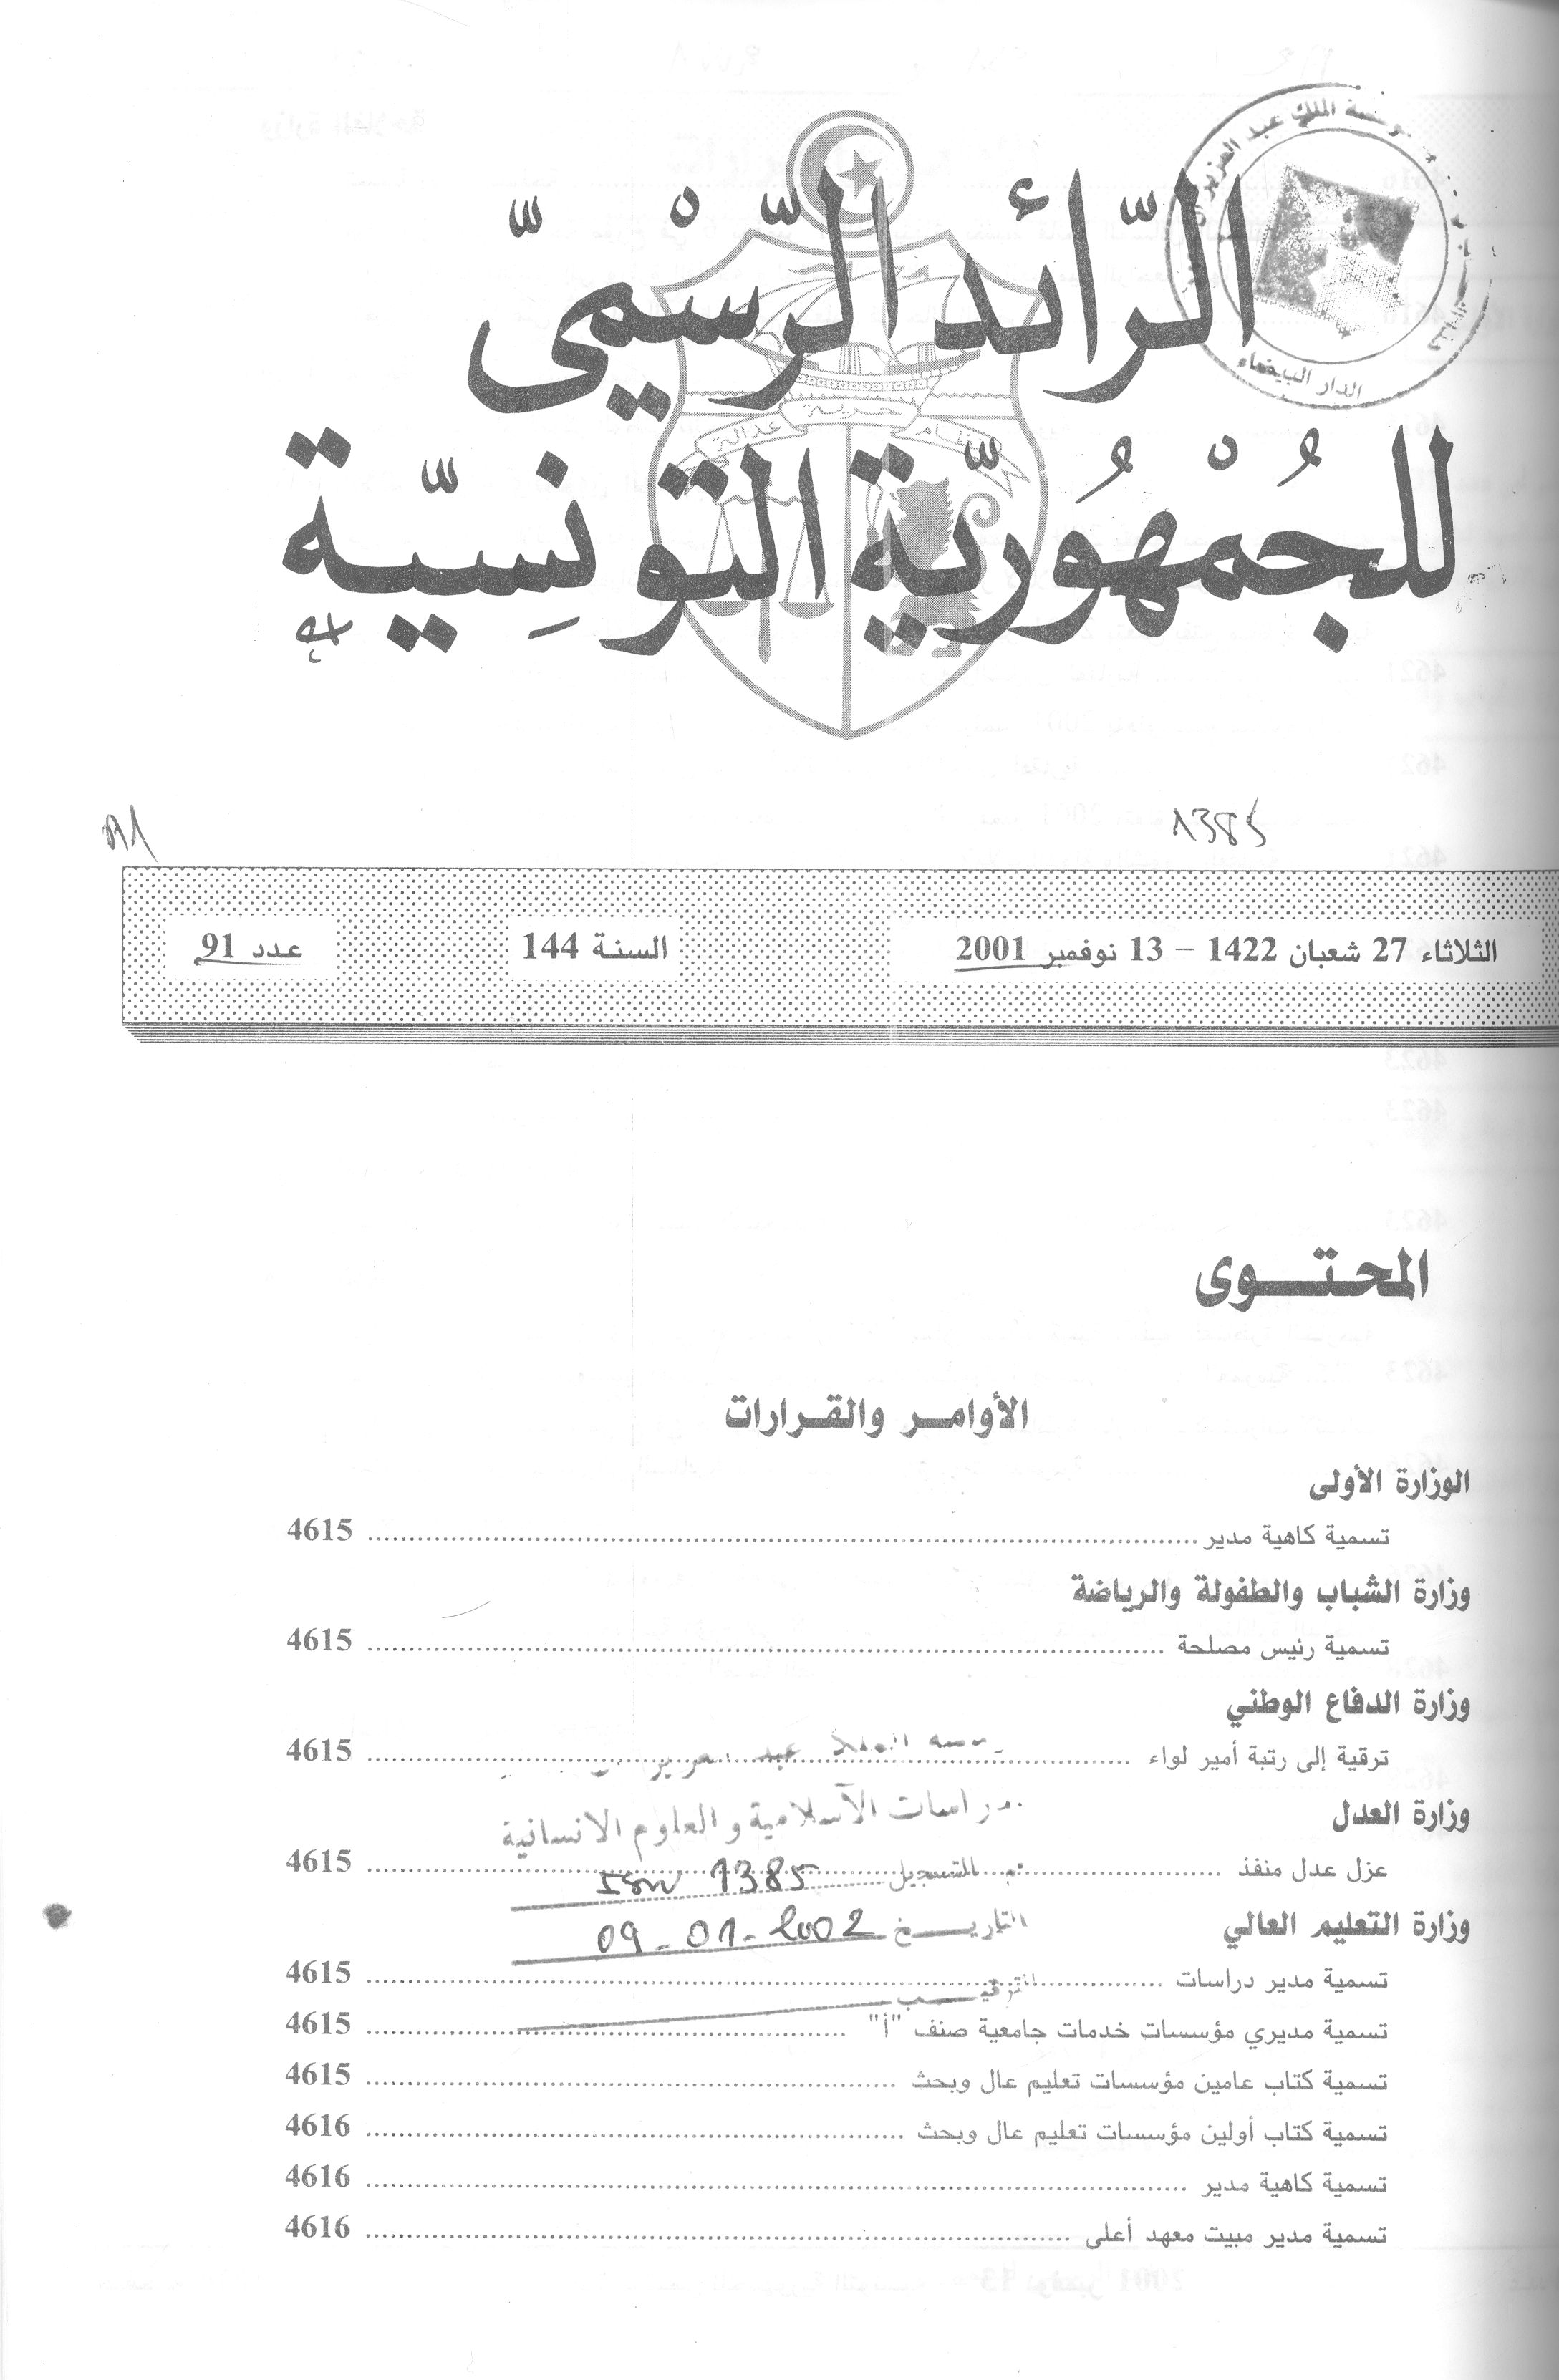 الرّائد الرّسْميّ
للجُمْهُوريّة التّونِسيّة
نظام حرية عدالة
الملك عبد العزيز
الدار البيضاء
1385
91
الثلاثاء 27 شعبان 1422 – 13 نوفمبر 2001
السنة 144
عدد 91
المحتـــوى
الأوامـر والقـرارات
الوزارة الأولى
تسمية كاهية مدير 4615
وزارة الشباب والطفولة والرياضة
تسمية رئيس مصلحة 4615
وزارة الدفاع الوطني
ترقية إلى رتبة أمير لواء 4615
وزارة العدل
دراسات الآسلامية و العلوم الانسانية
عزل عدل منفذ 4615
التسجيل 1385
وزارة التعليم العالي
التاريـــخ 09-01-2002
تسمية مدير دراسات 4615
الترتيـــب
تسمية مديري مؤسسات خدمات جامعية صنف "أ" 4615
تسمية كتاب عامين مؤسسات تعليم عال وبحث 4615
تسمية كتاب أولين مؤسسات تعليم عال وبحث 4616
تسمية كاهية مدير 4616
تسمية مدير مبيت معهد أعلى 4616